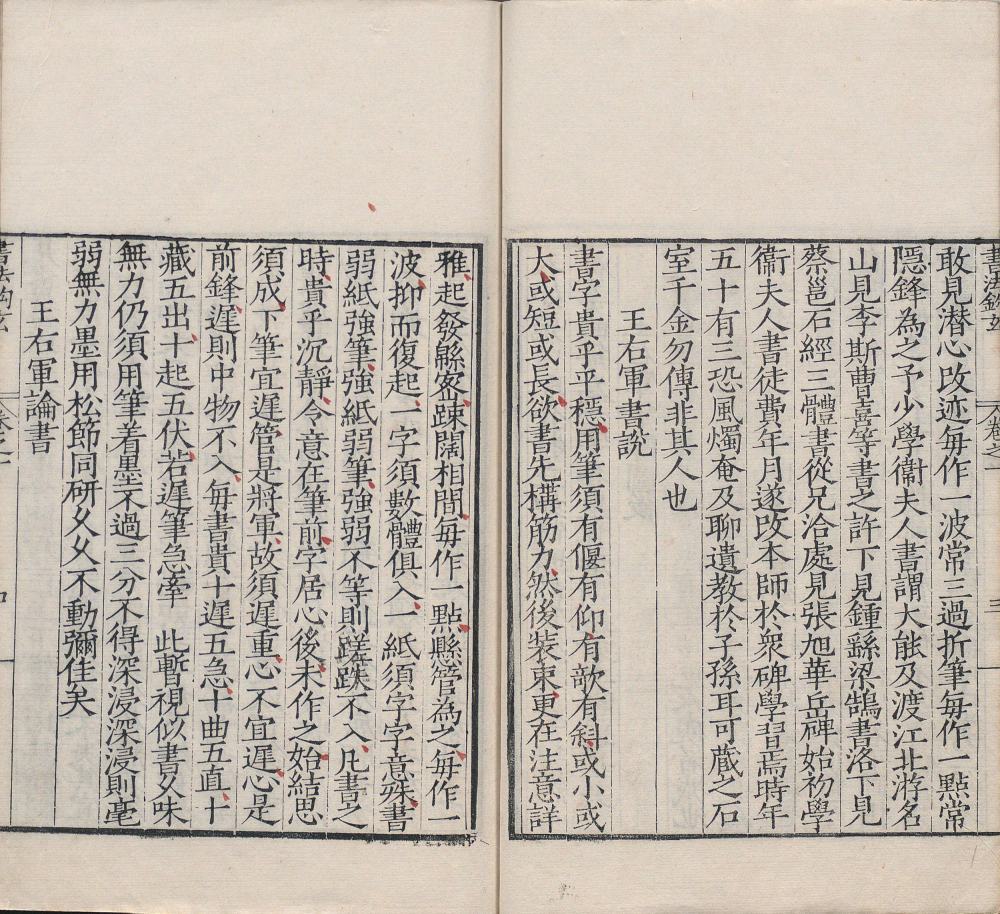 敢見潜心改迹毎作一波常三過折筆毎作一點常
隱鋒為之予少學衞夫人書謂大能及渡江北游名
山見李斯曹喜等書之許下見鍾繇梁鵠書洛下見
蔡邕石經三體書從兄洽處見張旭華岳碑始初學
衞夫人書徒費年月遂改本師於衆碑學習焉時年
五十有三恐風燭奄及聊遺教於子孫耳可藏之石
室千金勿傳非其人也
王右軍書説
書字貴乎平穩用筆須有偃有仰有欹有斜或小或
大或短或長欲書先構筋力然後裝束更在注意詳
雅起發緜宻踈闊相間毎作一點懸管為之毎作一
波抑而復起一字須數體俱入一紙須字字意殊書
弱紙強筆強紙弱筆強弱不等則蹉跌不入凡書之
時貴乎沉靜令意在筆前字居心後未作之始結思
須成下筆宜遲管是將軍故須遲重心不宜遲心是
前鋒遲則中物不入毎書貴十遲五急十曲五直十
藏五出十起五伏若遲筆急牽 此暫視似書乆味
無力仍須用筆着墨不過三分不得深浸深浸則毫
弱無力墨用松節同研乆乆不動彌佳矣
王右軍論書